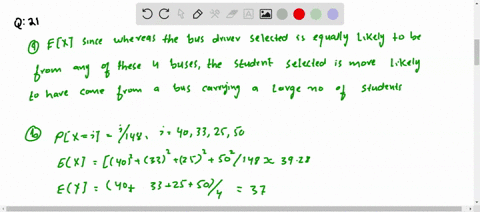 Q: 21
ⓐ E[X] since whereas the bus driver selected is equally likely to be
from any of these 4 buses, the student selected is more likely
to have come from a bus carrying a large no of students
ⓑ P[X=i] = i/148, i = 40, 33, 25, 50
E(X) = [(40)² + (33)² + (25)² + 50²/148 ≈ 39.28
E(Y) = (40+ 33+25+50)/4 = 37